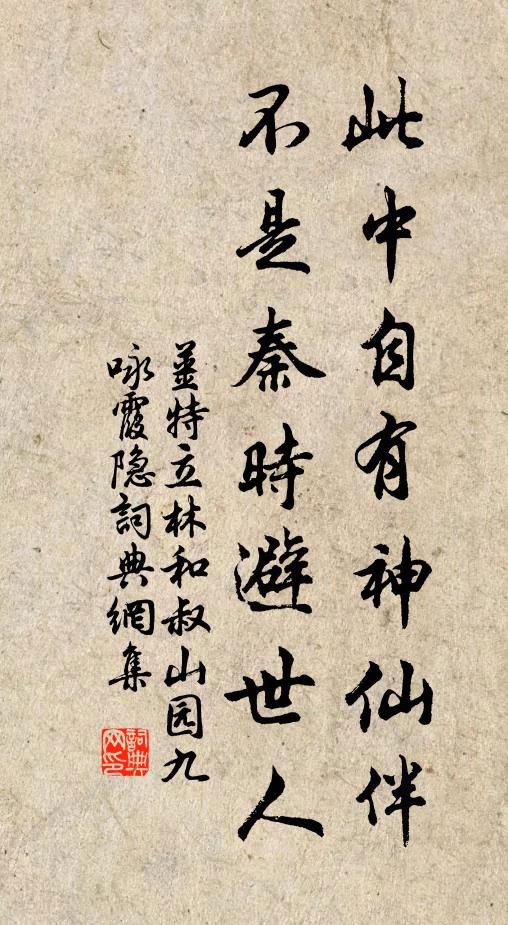 此中自有神仙伴
不是秦時避世人
薑特立林和叔山园九
咏霞隐詞典網集
詞典网印